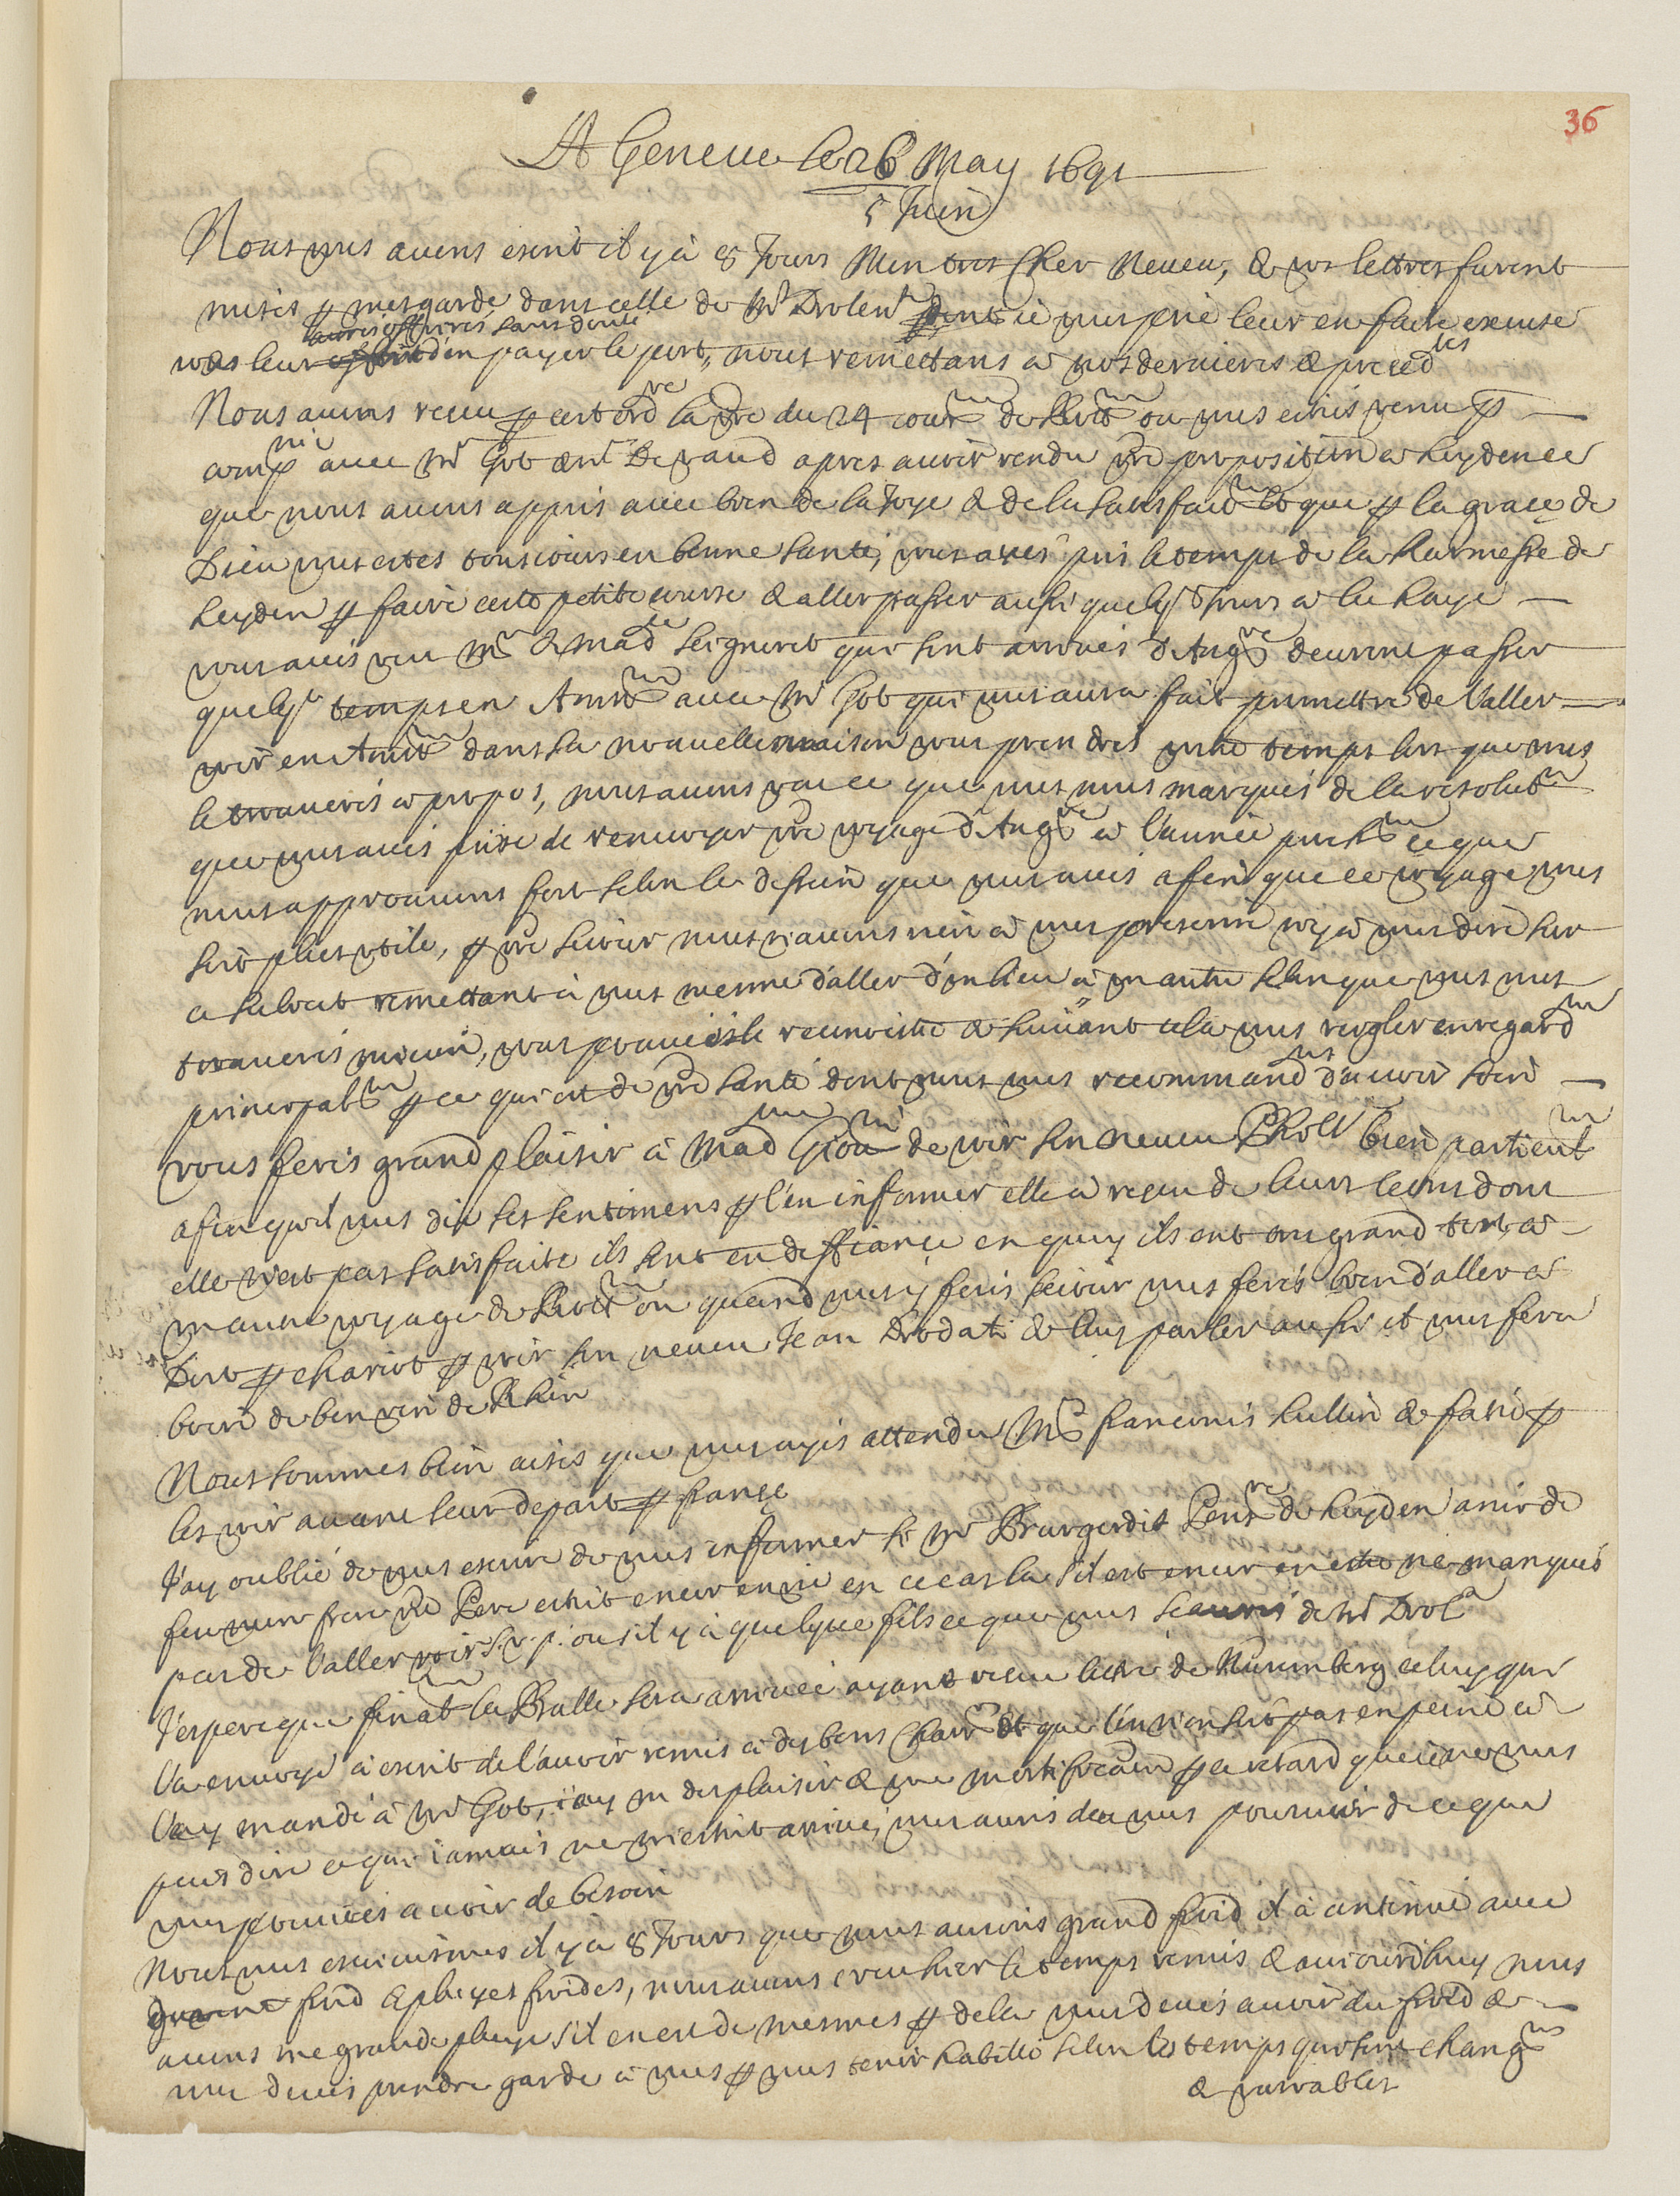 36
A Geneve le 26 May 1691
5 Juin
Nous vous avons escrit il y à 8 Jours Mon tres Cher Neveu, & vos lettres furent
mises p mesgarde dans celle de Mr Drolenx dont ie vous prie leur en faire excuse
aurés offrires sans doute
vous leur d'en payer le port, nous remettans à nos dernieres & preced tes
Nous avons receu p cest ord re la vre du 24 cour de Rott ou vous esties venu p
comp nie avec Mr Got & Mr De raud apres avoir rendu vre proposition à Leyden ce
que nous avons appris avec bien de la Joye & de la satisfact & que p la grace de
Dieu vous estes tousiours en bonne santé, vous avés pris le temps de la Karmesse de
Leyden p faire ceste petite course & aller passer aussi quelq Jours à la Haye
vous avés veu Mr & Mad le Seigneret qui sont arrivés d'Ang re devront passer
quelq temps en Amst avec Mr Got qui vous aura fait promettre de l'aller
voir en Amst dans sa nouvelle maison vous prendrés votre temps lors que vous
le trouverés à propos, nous avons veu ce que vous nous marqués de la resolut
que vous avés prise de renvoyer vre voyage d'Ang re à l'année proch ce que
nous approuvons fort selon le dessein que vous avés afin que ce voyage vous
soit plus utile, p vre seiour nous n'avons rien à vous prescrire ny à vous dire sur
ce subiect remettant à vous mesme d'aller d'un lieu à un autre selon que vous vous
trouverés mieux, vous pouvés le recognoistre & suivant cela vous regler en regard
principal p ce qui est de vre santé dont nous vous recommand ons d'avoir soin
vous ferés grand plaisir à Mad de voir son neveu bien particul
afin qu'il vous die ses sentimens p l'en informer elle à receu de leurs
elle n'est pas satisfaite ils sont en deffiance en quoy ils ont tres grand tort, à
vostre voyage de Rott ou quand vous y ferés seiour vous ferés bien d'aller à
Dort p chariot p voir son neveu Jean Diodati & luy parler aussi il vous fera
boire de bon vin de Rhin
Nous sommes bien aises que vous ayés attendu Mrs francois Lullin & fatio p
les voir avant leur depart p france
J'ay oublié de vous escrire de vous informer si Mr Bourgerdit Pens re de Leyden amis de
feu mon frere vre Pere estoit encor en vie en ce cas la s'il est encor en ne manqués
pas de l'aller voir s.v.p. ou s'il y à quelque fils ce que vous scaurés de Mr Drol
J'espere que final la Balle sera arrivée ayant receu lettre de Nuremberg celuy qui
l'a envoyé à escrit de l'avoir remis à dy bons Chair & que l'on n'en soit pas en peine ie
l'ay mandé à Mr Got, i'ay un desplaisir & une mortification p ce retard que ie ne vous
puis dire ce qui iamais ne m'estoit arrivé, vous aurés deu vous pourvoir de ce que
vous pouviés avoir de besoin
Nous vous escrivismes il y à 8 Jours que nous avions grand froid il à continué avec
froid & pluyes froides, nous avons creu hier le temps remis & auiourdhuy nous
avons une grande pluye s'il en est de mesmes p dela vous devés avoir du froid &
vous devés prendre garde à vous p vous tenir habillé selon les temps qui sont chang
& variables